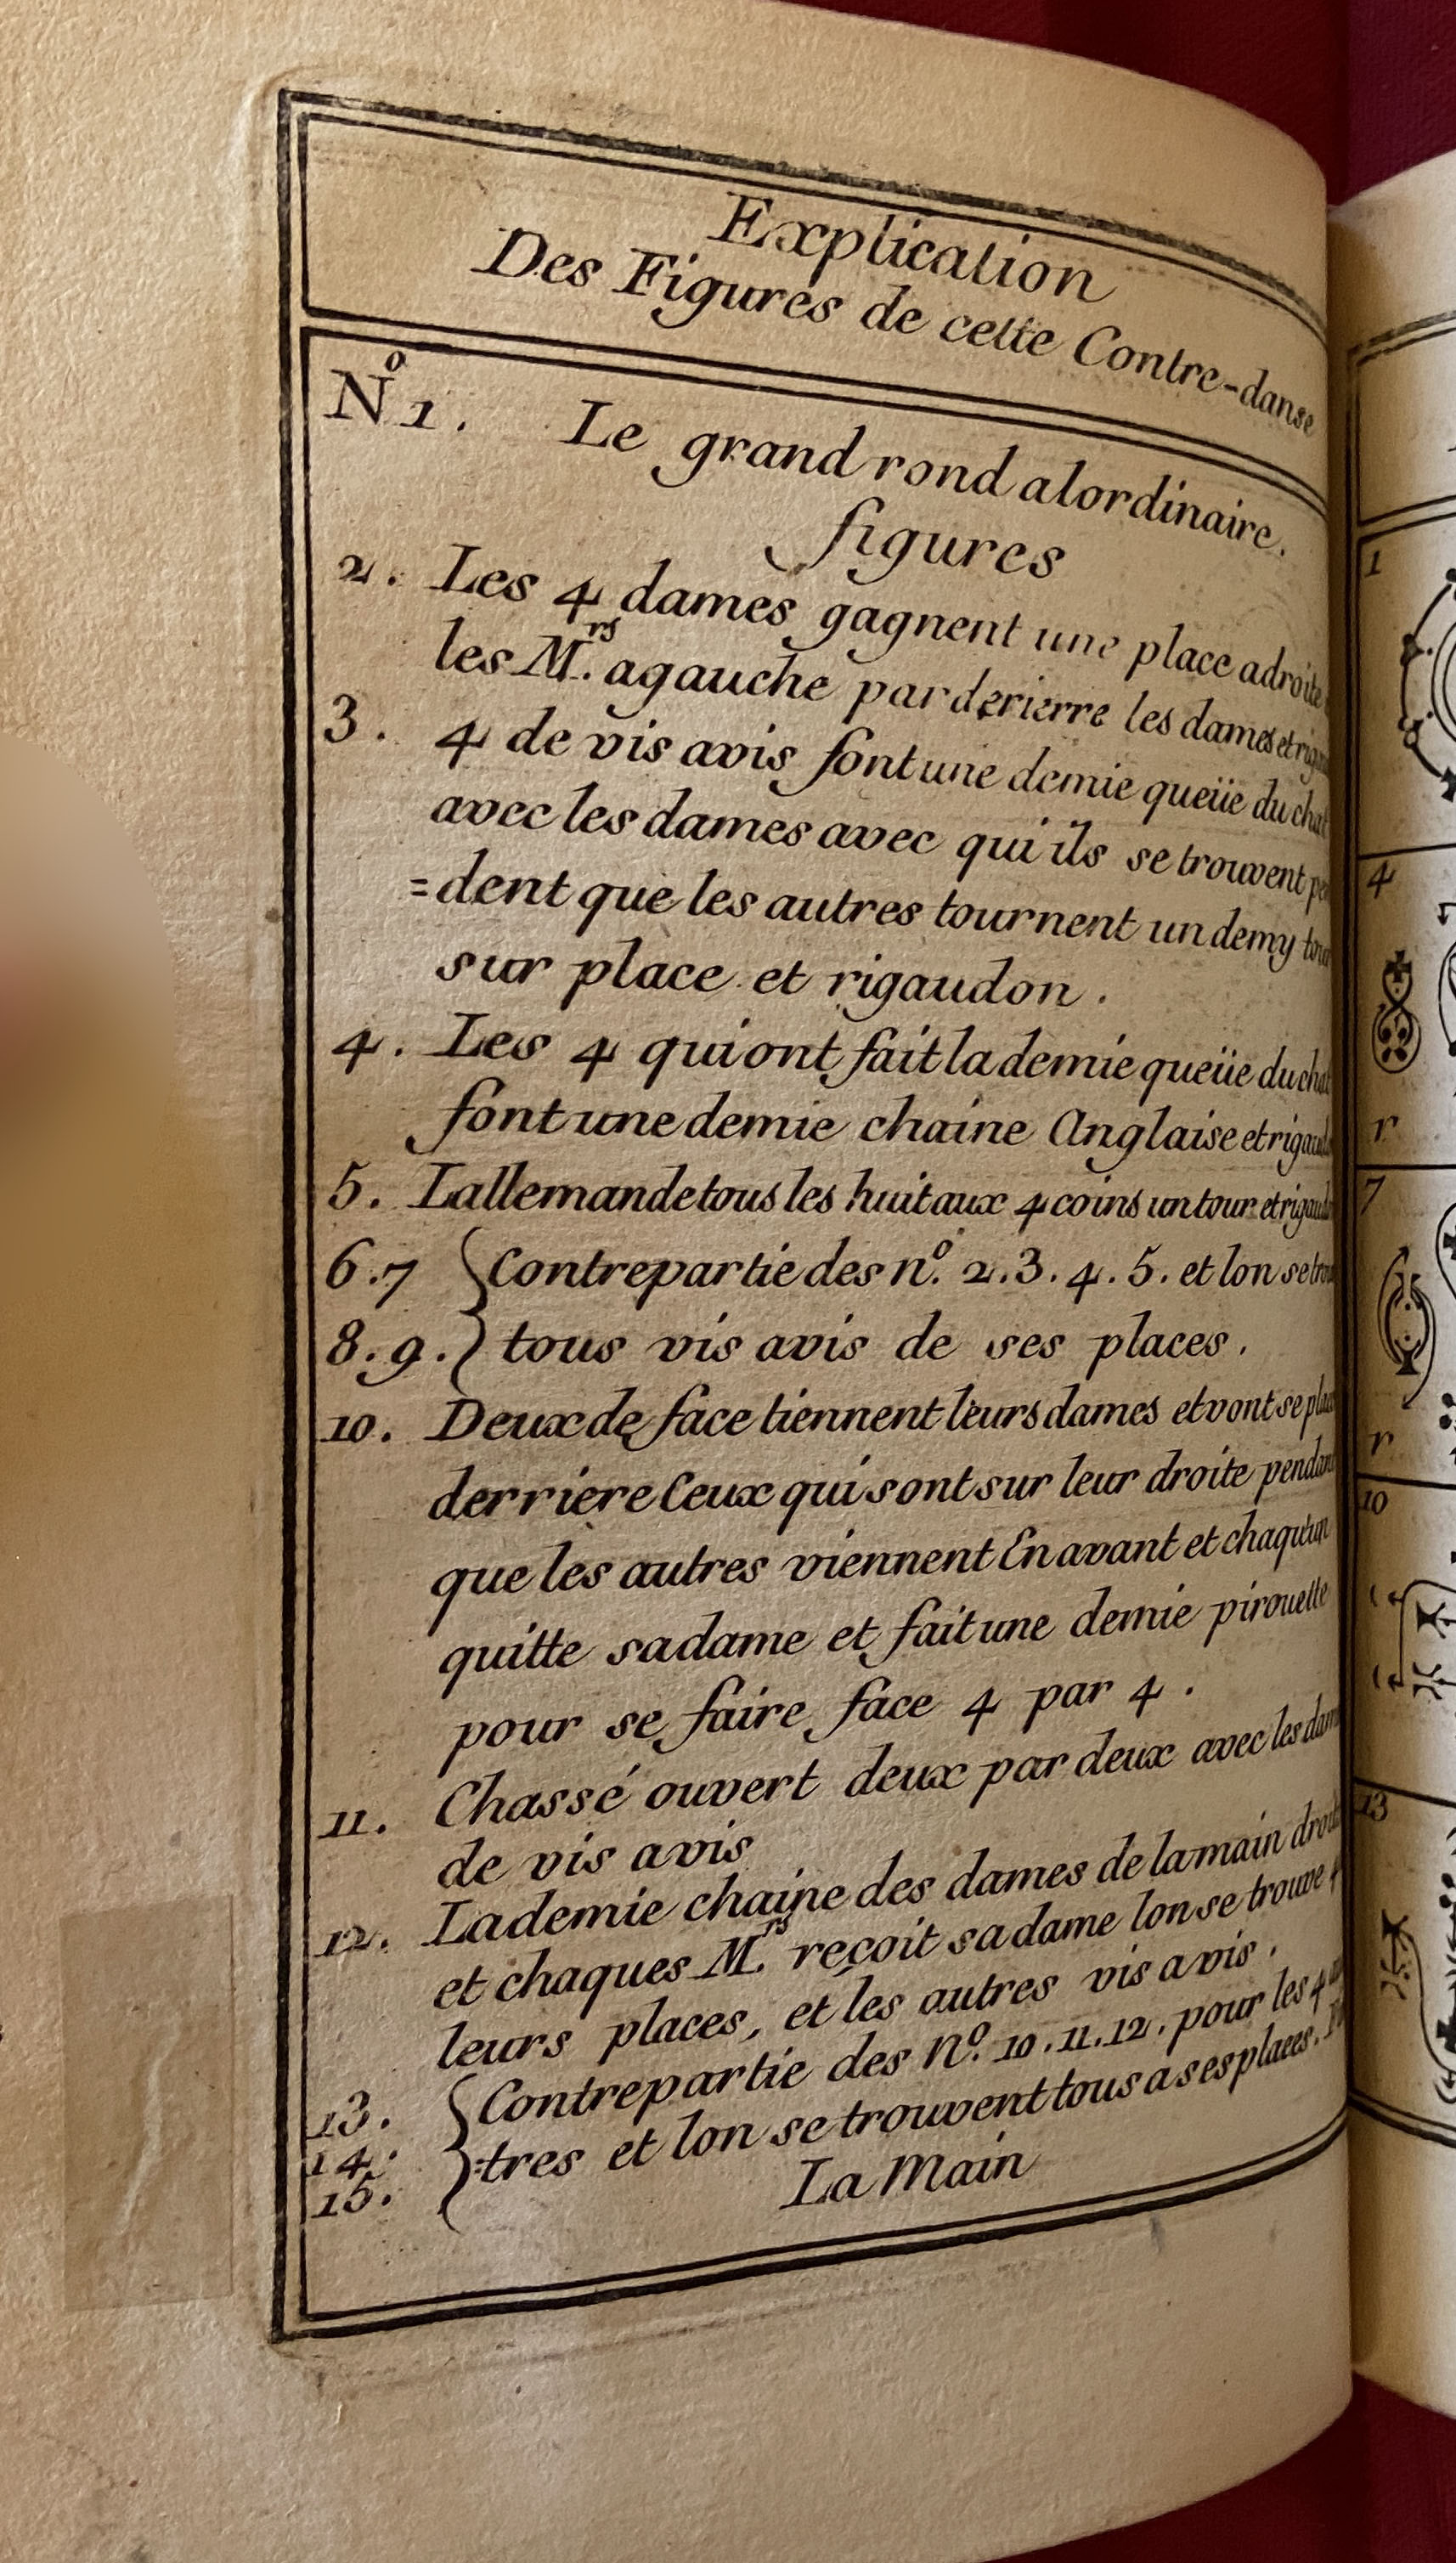 Explication
Des Figures de cette Contre-danse
N.º 1. Le grand rond alordinaire.
figures
2. Les 4 dames gagnent une place adroite
les M.rs agauche par derierre les dames et
3. 4 de vis avis font une demie queüe du chat
avec les dames avec qui ils se trouvent
=dent que les autres tournent un demy tour
sur place et rigaudon.
4. Les 4 qui ont fait la demie queüe du chat
font une demie chaine Anglaise et
5. Lallemande tous les huit aux 4 coins un tour et
6.7 Contrepartie des nº. 2.3.4.5. et lon se
8.9. tous vis avis de ses places.
10. Deux de face tiennent leurs dames et vont se
derriere Ceux qui sont sur leur droite pendant
que les autres viennent En avant et chaqu'un
quitte sa dame et fait une demie pirouette
pour se faire face 4 par 4.
11. Chassé ouvert deux par deux avec les
de vis avis
12. La demie chaine des dames de la main droite
et chaques M.rs reçoit sa dame lon se trouve
leurs places, et les autres vis avis.
13. Contrepartie des nº. 10.11.12. pour les 4
14. =tres et lon se trouvent tous a ses places.
15.
La Main
1
4
r
7
r
10
13